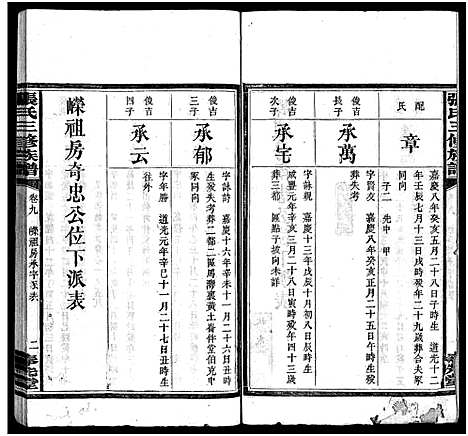 張氏三修族譜
配
氏
章
嘉慶八年癸亥五月二十八日子時生 道光十二
年壬辰七月十三日戌時歿年二十九歲葬合夫塚
同向
子二 先中 甲
俊吉
長子
承萬
字賢友 嘉慶八年癸亥正月二十五日午時生 歿
葬失考
俊吉
次子
承宅
字詠觀 嘉慶十三年戊辰十月初八日辰時生
咸豐元年辛亥三月二十八日寅時歿年四十三歲
葬三都 匯點子坡向未詳
俊吉
三子
承郁
字詠詩 嘉慶十六年辛未十一月二十六日丑時
生歿失考葬二都二區馬灣裏黃土崙伴堂伯克中
塚右
俊吉
四子
承云
字年勝 道光元年辛巳十一月二十七日丑時生
往外
嶸祖房奇忠公位下派表
張氏三修族譜
卷九 嶸祖房承字派表
二
奉先堂